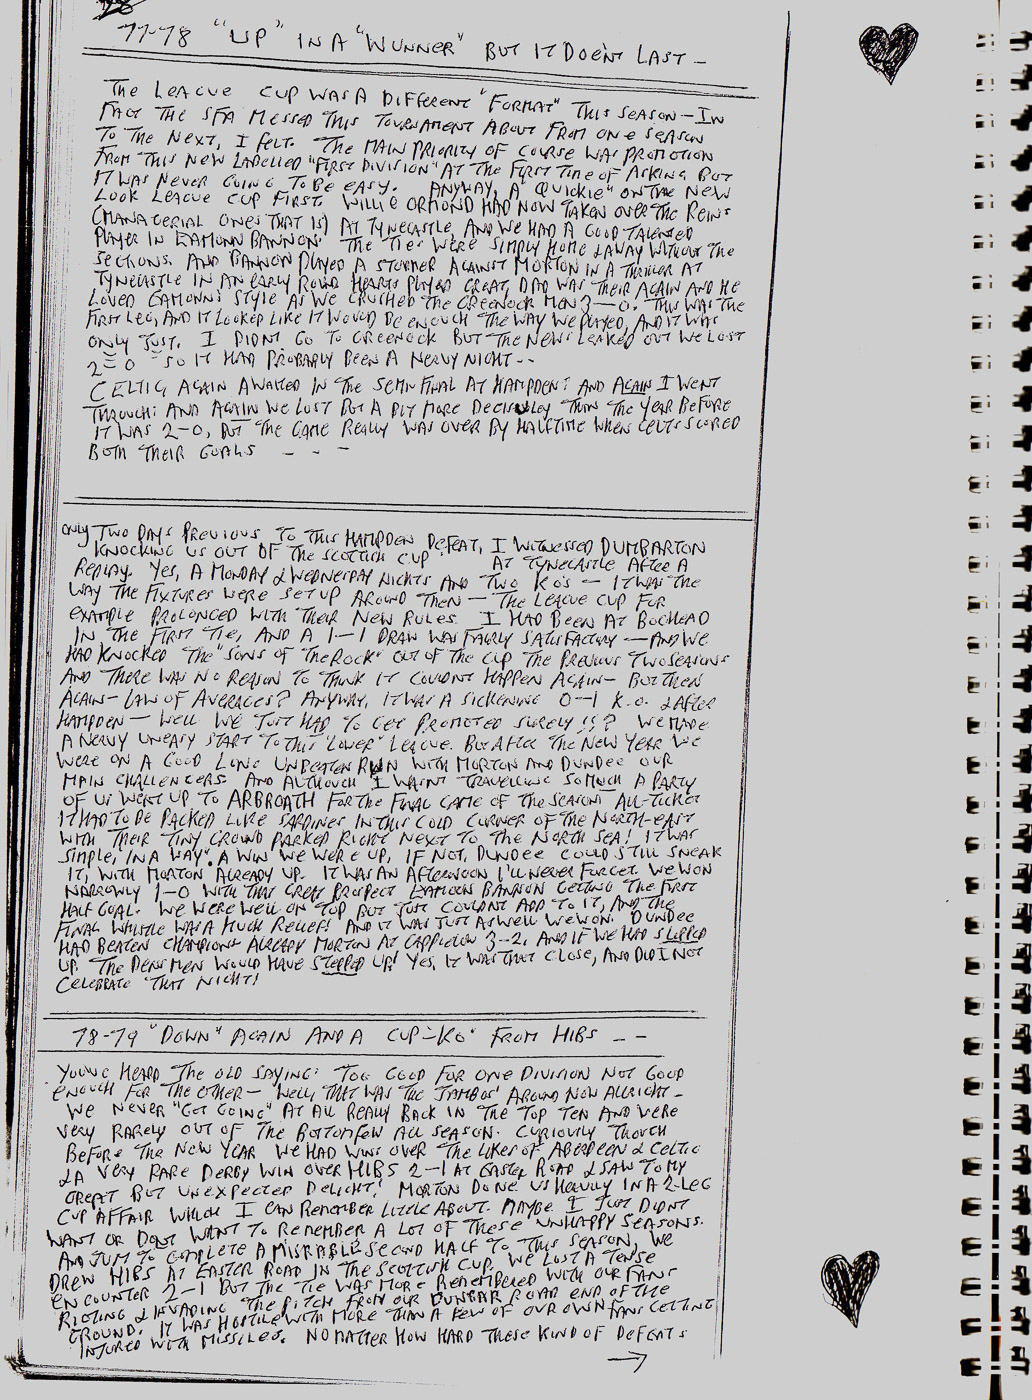 28
77-78 "UP" IN A "WUNNER" BUT IT DOEN'T LAST -
THE LEAGUE CUP WAS A DIFFERENT "FORMAT" THIS SEASON - IN
FACT THE SFA MESSED THIS TOURNAMENT ABOUT FROM ONE SEASON
TO THE NEXT, I FELT. THE MAIN PRIORITY OF COURSE WAS PROMOTION
FROM THIS NEW LABELLED "FIRST DIVISION" AT THE FIRST TIME OF ASKING BUT
IT WAS NEVER GOING TO BE EASY. ANYWAY, A "QUICKIE" ON THE NEW
LOOK LEAGUE CUP FIRST. WILLIE ORMOND HAD NOW TAKEN OVER THE REINS
(MANAGERIAL ONES THAT IS) AT TYNECASTLE AND WE HAD A GOOD TALENTED
PLAYER IN EAMONN BANNON. THE TIES WERE SIMPLY HOME & AWAY WITHOUT THE
SECTIONS. AND BANNON PLAYED A STORMER AGAINST MORTON IN A THRILLER AT
TYNECASTLE IN AN EARLY ROUND HEARTS PLAYED GREAT, DAD WAS THEIR AGAIN AND HE
LOVED EAMONN'S STYLE AS WE CRUSHED THE GREENOCK MEN 3-0. THIS WAS THE
FIRST LEG, AND IT LOOKED LIKE IT WOULD BE ENOUGH THE WAY WE PLAYED, AND IT WAS
ONLY JUST. I DIDN'T GO TO GREENOCK BUT THE NEWS LEAKED OUT WE LOST
2-0 - SO IT HAD PROBABLY BEEN A NERVY NIGHT - -
CELTIC AGAIN AWAITED IN THE SEMI-FINAL AT HAMPDEN! AND AGAIN I WENT
THROUGH! AND AGAIN WE LOST BUT A BIT MORE DECISIVLEY THAN THE YEAR BEFORE
IT WAS 2-0, BUT THE GAME REALLY WAS OVER BY HALFTIME WHEN CELTS SCORED
BOTH THEIR GOALS - - -
ONLY TWO DAYS PREVIOUS TO THIS HAMPDEN DEFEAT, I WITNESSED DUMBARTON
KNOCKING US OUT OF THE SCOTTISH CUP! AT TYNECASTLE AFTER A
REPLAY. YES, A MONDAY & WEDNESDAY NIGHTS AND TWO KO'S - IT WAS THE
WAY THE FIXTURES WERE SET UP AROUND THEN - THE LEAGUE CUP FOR
EXAMPLE PROLONGED WITH THEIR NEW RULES. I HAD BEEN AT BOGHEAD
IN THE FIRST TIE, AND A 1-1 DRAW WAS FAIRLY SATISFACTORY - AND WE
HAD KNOCKED THE "SONS OF THE ROCK" OUT OF THE CUP THE PREVIOUS TWO SEASONS
AND THERE WAS NO REASON TO THINK IT COULDNT HAPPEN AGAIN - BUT THEN
AGAIN - LAW OF AVERAGES? ANYWAY, IT WAS A SICKENING 0-1 K.O. & AFTER
HAMPDEN - WELL WE JUST HAD TO GET PROMOTED SURELY!!? WE MADE
A NERVY UNEASY START TO THIS "LOWER" LEAGUE. BUT AFTER THE NEW YEAR WE
WERE ON A GOOD LONG UNBEATEN RUN WITH MORTON AND DUNDEE OUR
MAIN CHALLENGERS AND ALTHOUGH I WASNT TRAVELLING SO MUCH A PARTY
OF US WENT UP TO ARBROATH FOR THE FINAL GAME OF THE SEASON ALL-TICKET
IT HAD TO BE PACKED LIKE SARDINES IN THIS COLD CORNER OF THE NORTH-EAST
WITH THEIR TINY GROUND PARKED RIGHT NEXT TO THE NORTH SEA! IT WAS
SIMPLE, IN A WAY. A WIN WE WERE UP, IF NOT, DUNDEE COULD STILL SNEAK
IT, WITH MORTON ALREADY UP. IT WAS AN AFTERNOON I'LL NEVER FORGET. WE WON
NARROWLY 1-0 WITH THAT GREAT PROSPECT EAMONN BANNON GETTING THE FIRST
HALF GOAL. WE WERE WELL ON TOP BUT JUST COULDNT ADD TO IT, AND THE
FINAL WHISTLE WAS A HUGE RELIEF! AND IT WAS JUST AS WELL WE WON. DUNDEE
HAD BEATEN CHAMPIONS ALREADY MORTON AT CAPPIELOW 3-2, AND IF WE HAD SLIPPED
UP, THE DENS MEN WOULD HAVE STEPPED UP! YES, IT WAS THAT CLOSE, AND DID I NOT
CELEBRATE THAT NIGHT!
78-79 "DOWN" AGAIN AND A CUP-"KO" FROM HIBS - -
YOUVE HEARD THE OLD SAYING! TOO GOOD FOR ONE DIVISION NOT GOOD
ENOUGH FOR THE OTHER - WELL THAT WAS THE JAMBOS AROUND NOW ALLRIGHT -
WE NEVER "GOT GOING" AT ALL REALLY BACK IN THE TOP TEN AND WERE
VERY RARELY OUT OF THE BOTTOM FEW ALL SEASON. CURIOUSLY THOUGH
BEFORE THE NEW YEAR WE HAD WINS OVER THE LIKES OF ABERDEEN & CELTIC
& A VERY RARE DERBY WIN OVER HIBS 2-1 AT EASTER ROAD I SAW TO MY
GREAT BUT UNEXPECTED DELIGHT! MORTON DONE US HEAVILY IN A 2-LEG
CUP AFFAIR WHICH I CAN REMEMBER LITTLE ABOUT. MAYBE I JUST DIDNT
WANT OR DONT WANT TO REMEMBER A LOT OF THESE UNHAPPY SEASONS.
AND JUST TO COMPLETE A MISRABLE SECOND HALF TO THIS SEASON, WE
DREW HIBS AT EASTER ROAD IN THE SCOTTISH CUP. WE LOST A TENSE
ENCOUNTER 2-1 BUT THE TIE WAS MORE REMEMBERED WITH OUR FANS
RIOTING & INVADING THE PITCH FROM OUR DUNBAR ROAD END OF THE
GROUND. IT WAS HOSTILE WITH MORE THAN A FEW OF OUR OWN FANS GETTING
INJURED WITH MISSILES. NO MATTER HOW HARD THESE KIND OF DEFEATS